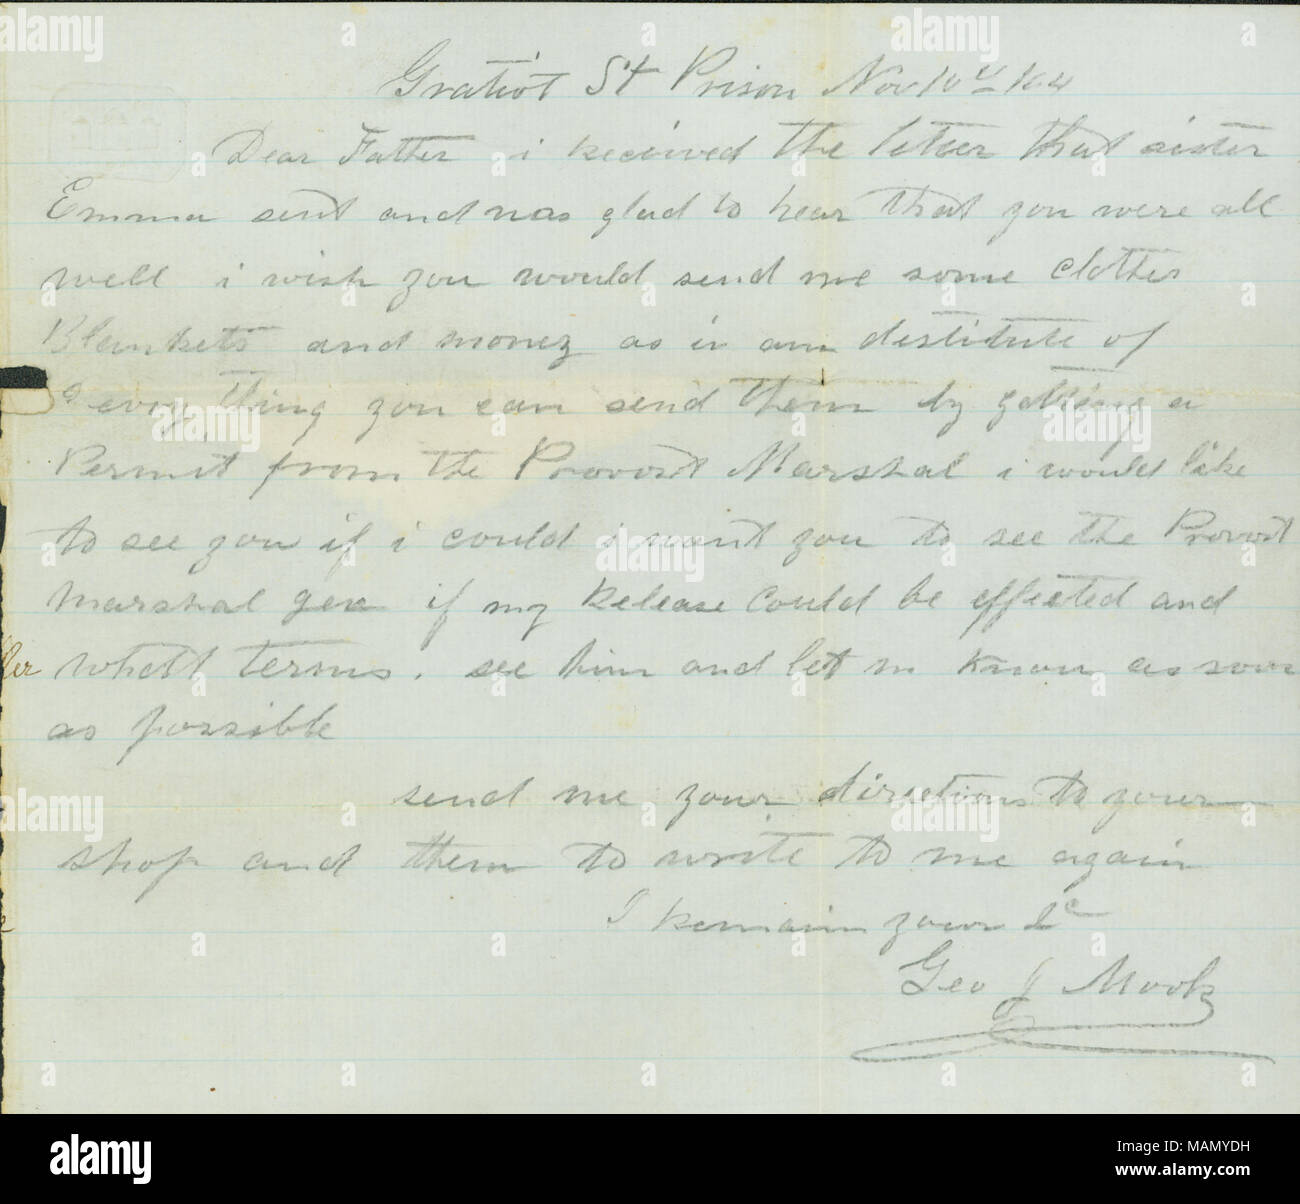 Gratiot St Prison Nov 10th /64
Dear Father i received the letter that sister
Emma sent and was glad to hear that you were all
well i wish you would send me some clothes
Blankets and money as i am destitute of
every thing you can send them by getting a
Permit from the Provost Marshal i would like
to see you if i could i want you to see the Provost
Marshal gen if my Release could be effected and
whatt terms . see him and let me know as soon
as possible
send me your directions to your
shop and them to write to me again
I remain your &c
Geo J Mook
alamy
Image ID: MAMYDH
www.alamy.com